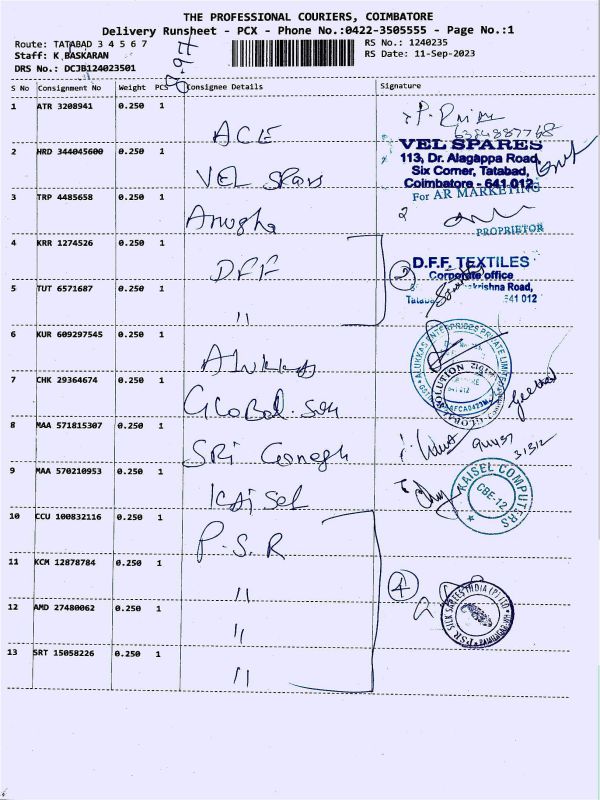 THE PROFESSIONAL COURIERS, COIMBATORE
Delivery Runsheet - PCX - Phone No.:0422-3505555 - Page No.:1
Route: TATABAD 3 4 5 6 7
RS No.: 1240235
Staff: K BASKARAN
RS Date: 11-Sep-2023
DRS No.: DCJB124023501
S No Consignment No Weight PCS Consignee Details Signature
1 ATR 3208941 0.250 1
ACE
2 HRD 344045600 0.250 1
VEL
VEL SPARES
113, Dr. Alagappa Road,
Six Corner, Tatabad,
Coimbatore - 641 012
For AR MARKETING
3 TRP 4485658 0.250 1
Anugha
2
PROPRIETOR
4 KRR 1274526 0.250 1
DFF
2
D.F.F. TEXTILES
Corporate office
krishna Road,
641 012
5 TUT 6571687 0.250 1
"
6 KUR 609297545 0.250 1
ALUKKAS ENTERPRISES PRIVATE LIMITED
7 CHK 29364674 0.250 1
Global
8 MAA 571815307 0.250 1
SRI Ganegh
9 MAA 570210953 0.250 1
KAISEL
KAISEL COMPUTERS
CBE-12
10 CCU 100832116 0.250 1
P.S.R
11 KCM 12878784 0.250 1
"
4
12 AMD 27480062 0.250 1
"
PSR SILK SAREES INDIA (P) LTD
13 SRT 15058226 0.250 1
"